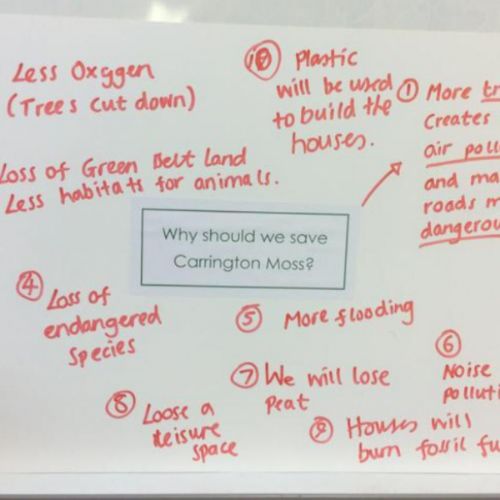 Less Oxygen
(Trees cut down)
Loss of Green Belt land
Less habitats for animals.
⑩ Plastic
will be used
to build the
houses.
① More
Creates
air
and
roads
Why should we save
Carrington Moss?
④ Loss of
endangered
species
⑤ More flooding
⑥
Noise
⑦ We will lose
Peat
⑧ Loose a
leisure
space
⑨ Houses will
burn fossil